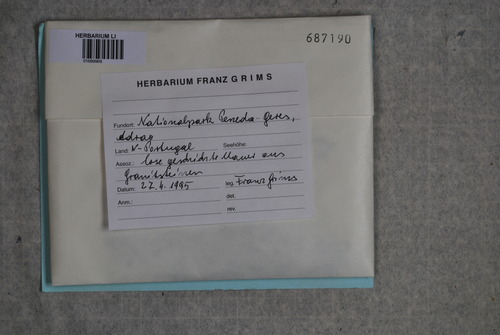 HERBARIUM LI
687190
HERBARIUM FRANZ GRIMS
Fundort: Nationalpark Peneda-Geres,
Adrao
Land: N-Portugal Seehöhe:
Assoz.: lose geschichtete Mauer aus
Granitsteinen
Datum: 27.4.1995 leg. Franz Grims
Anm.: det.
rev.